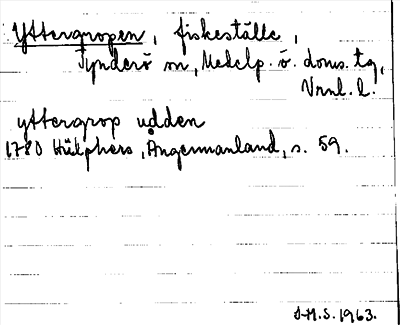 Yttergropen, fiskeställe,
Tynderö sn, Medelp. ö. doms. tg,
Vnnl. l.
yttergrop udden
1780 Hülphers, Ångermanland, s. 59.
S.H.S. 1963.